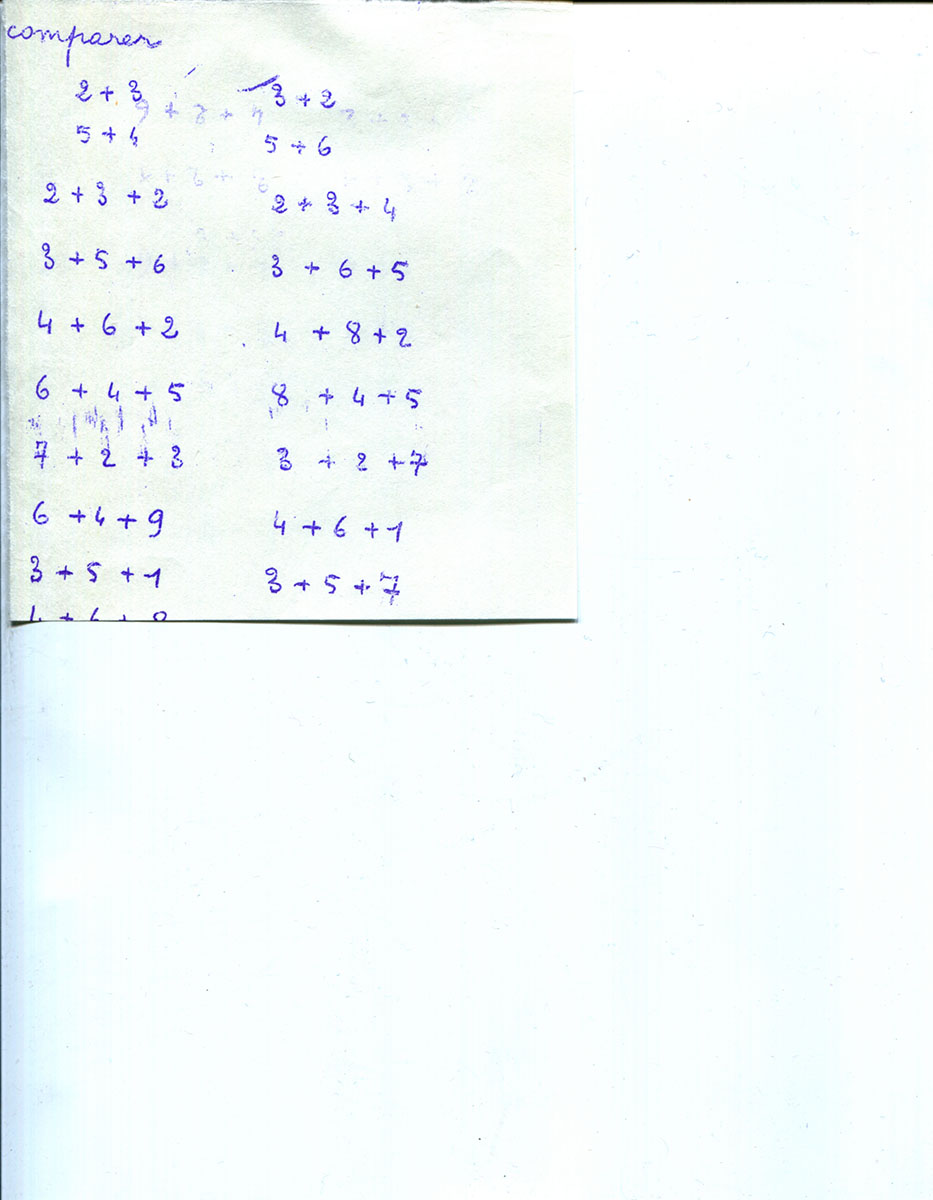 comparer
2 + 3 3 + 2
5 + 4 5 + 6
2 + 3 + 2 2 + 3 + 4
3 + 5 + 6 3 + 6 + 5
4 + 6 + 2 4 + 8 + 2
6 + 4 + 5 8 + 4 + 5
7 + 2 + 3 3 + 2 + 7
6 + 4 + 9 4 + 6 + 1
3 + 5 + 1 3 + 5 + 7